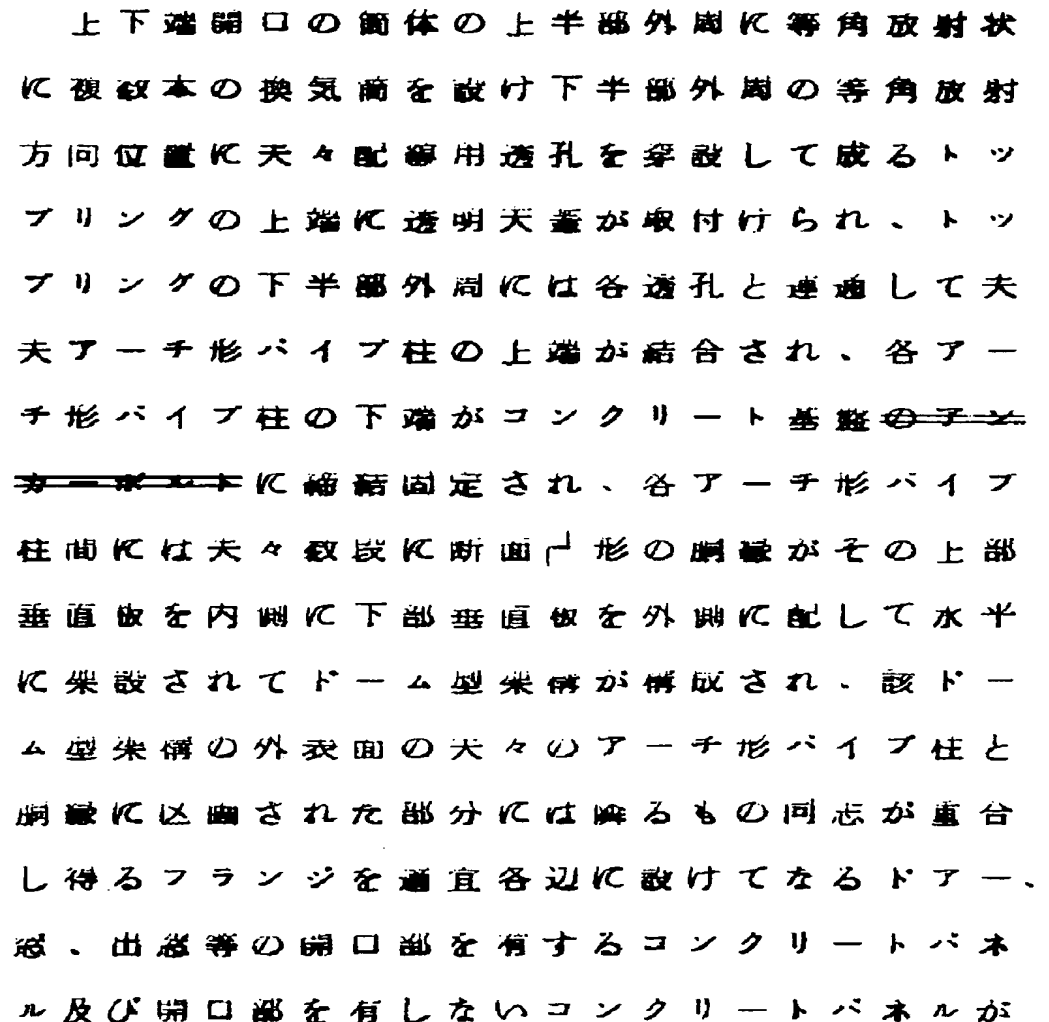 上下端開口の筒体の上半部外周に等角放射状
に複数本の換気筒を設け下半部外周の等角放射
方向位置に夫々配線用透孔を穿設して成るトッ
プリングの上端に透明天蓋が取付けられ、トッ
プリングの下半部外周には各透孔と連通して夫
夫アーチ形パイプ柱の上端が結合され、各アー
チ形パイプ柱の下端がコンクリート基盤のアン
カーボルトに締結固定され、各アーチ形パイプ
柱間には夫々数段に断面 形の胴縁がその上部
垂直板を内側に下部垂直板を外側に配して水平
に架設されてドーム型架構が構成され、該ドー
ム型架構の外表面の夫々のアーチ形パイプ柱と
胴縁に区画された部分には隣るもの同志が重合
し得るフランジを適宜各辺に設けてなるドアー、
窓、出窓等の開口部を有するコンクリートパネ
ル及び開口部を有しないコンクリートパネルが